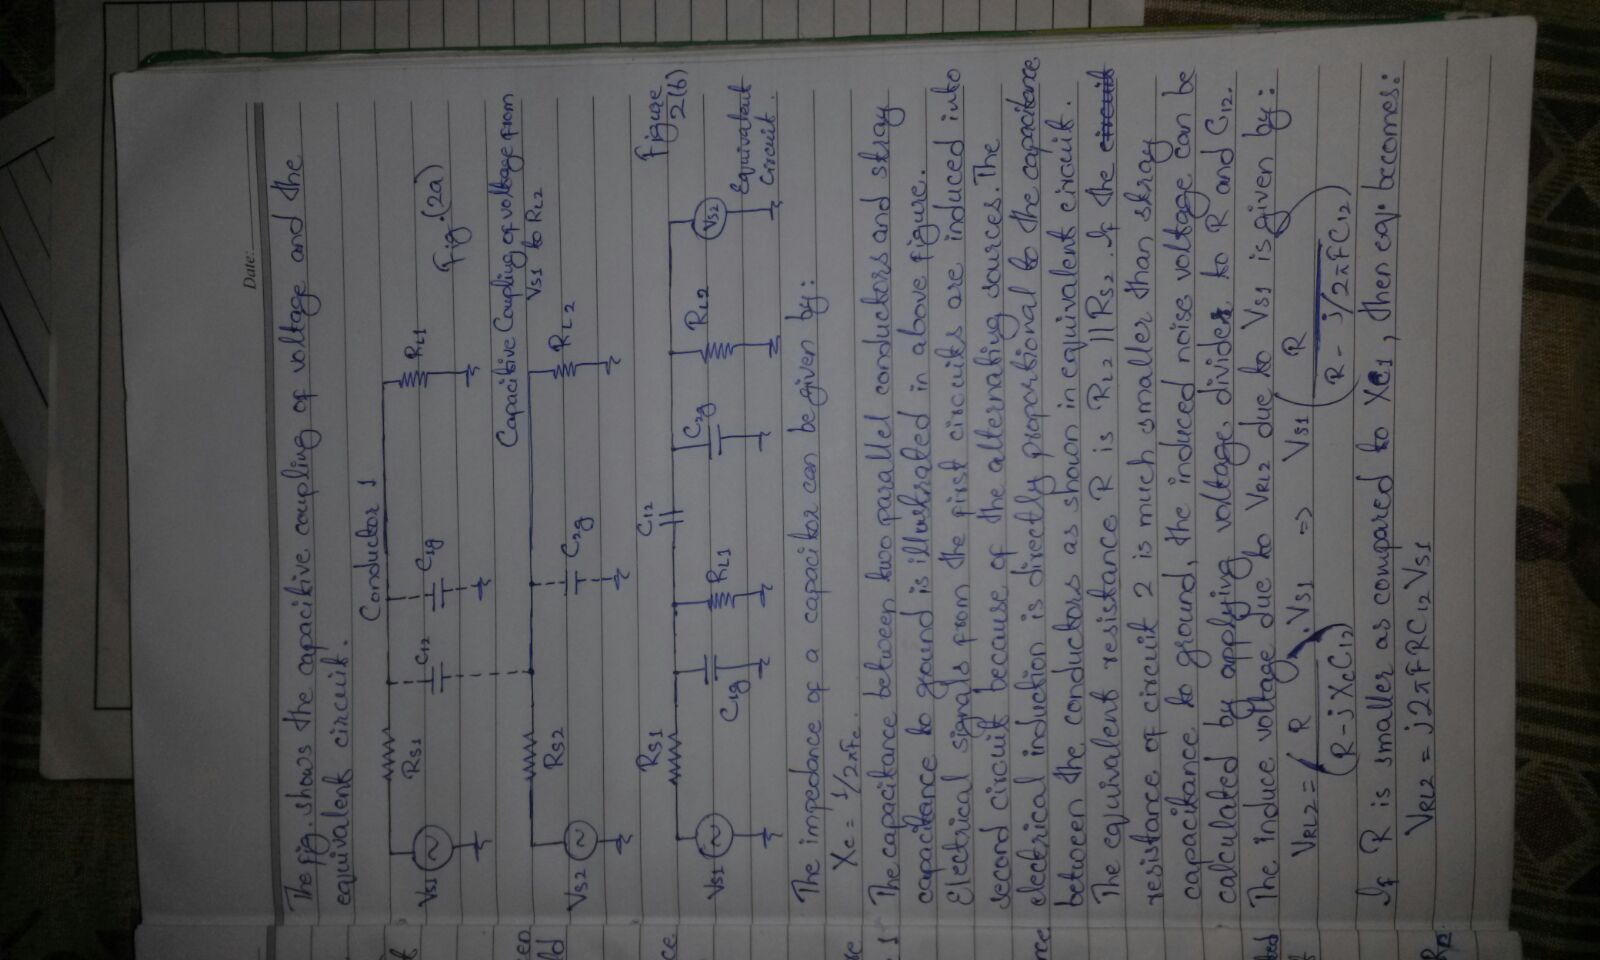 Date:
The fig. shows the capacitive coupling of voltage and the
equivalent circuit.
Conductor 1
Vs1
Rs1
C12
C1g
RL1
Fig.(2a)
Capacitive Coupling of voltage from
Vs1 to RL2
Vs2
Rs2
C2g
RL2
Figure
2(b)
Vs1
Rs1
C1g
RL1
C12
C2g
RL2
Vs2
Equivalent
Circuit.
The impedance of a capacitor can be given by:
Xc = 1/2πFc.
The capacitance between two parallel conductors and stray
capacitance to ground is illustrated in above figure.
Electrical signals from the first circuits are induced into
second circuit because of the alternating sources. The
electrical induction is directly proportional to the capacitance
between the conductors as shown in equivalent circuit.
The equivalent resistance R is RL2 || Rs2. If the circuit
resistance of circuit 2 is much smaller than stray
capacitance to ground, the induced noise voltage can be
calculated by applying voltage divider to R and C12.
The induce voltage due to VRL2 due to Vs1 is given by:
VRL2 = (R / (R - j XcC12)) . Vs1 => Vs1 (R / (R - j/2πFC12))
If R is smaller as compared to Xc1, then eq. becomes:
VRL2 = j2πFRC12 Vs1